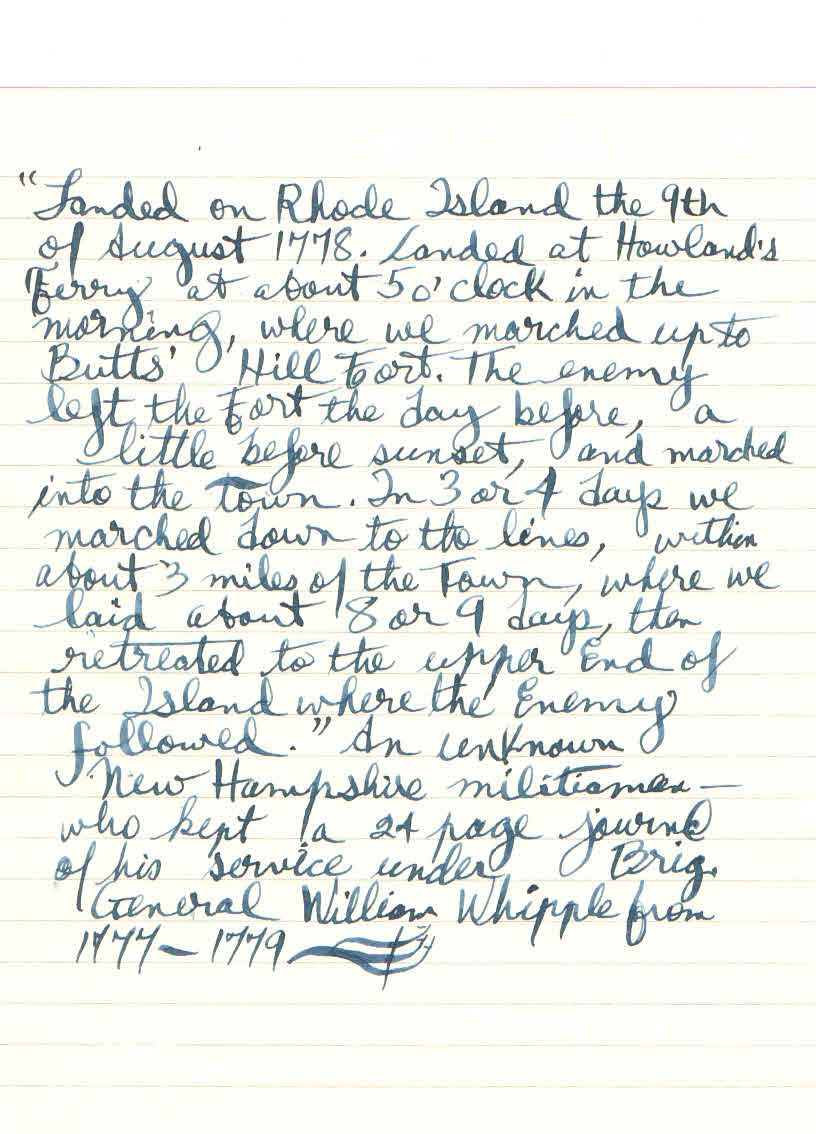 "Landed on Rhode Island the 9th
of August 1778. Landed at Howland's
Ferry at about 5 o'clock in the
morning, where we marched up to
Butts' Hill Fort. The enemy
left the Fort the day before, a
little before sunset, and marched
into the Town. In 3 or 4 days we
marched down to the lines, within
about 3 miles of the Town, where we
laid about 8 or 9 days, then
retreated to the upper End of
the Island where the Enemy
followed." An unknown
New Hampshire militiaman—
who kept a 24 page journal
of his service under Brig.
General William Whipple from
1777–1779